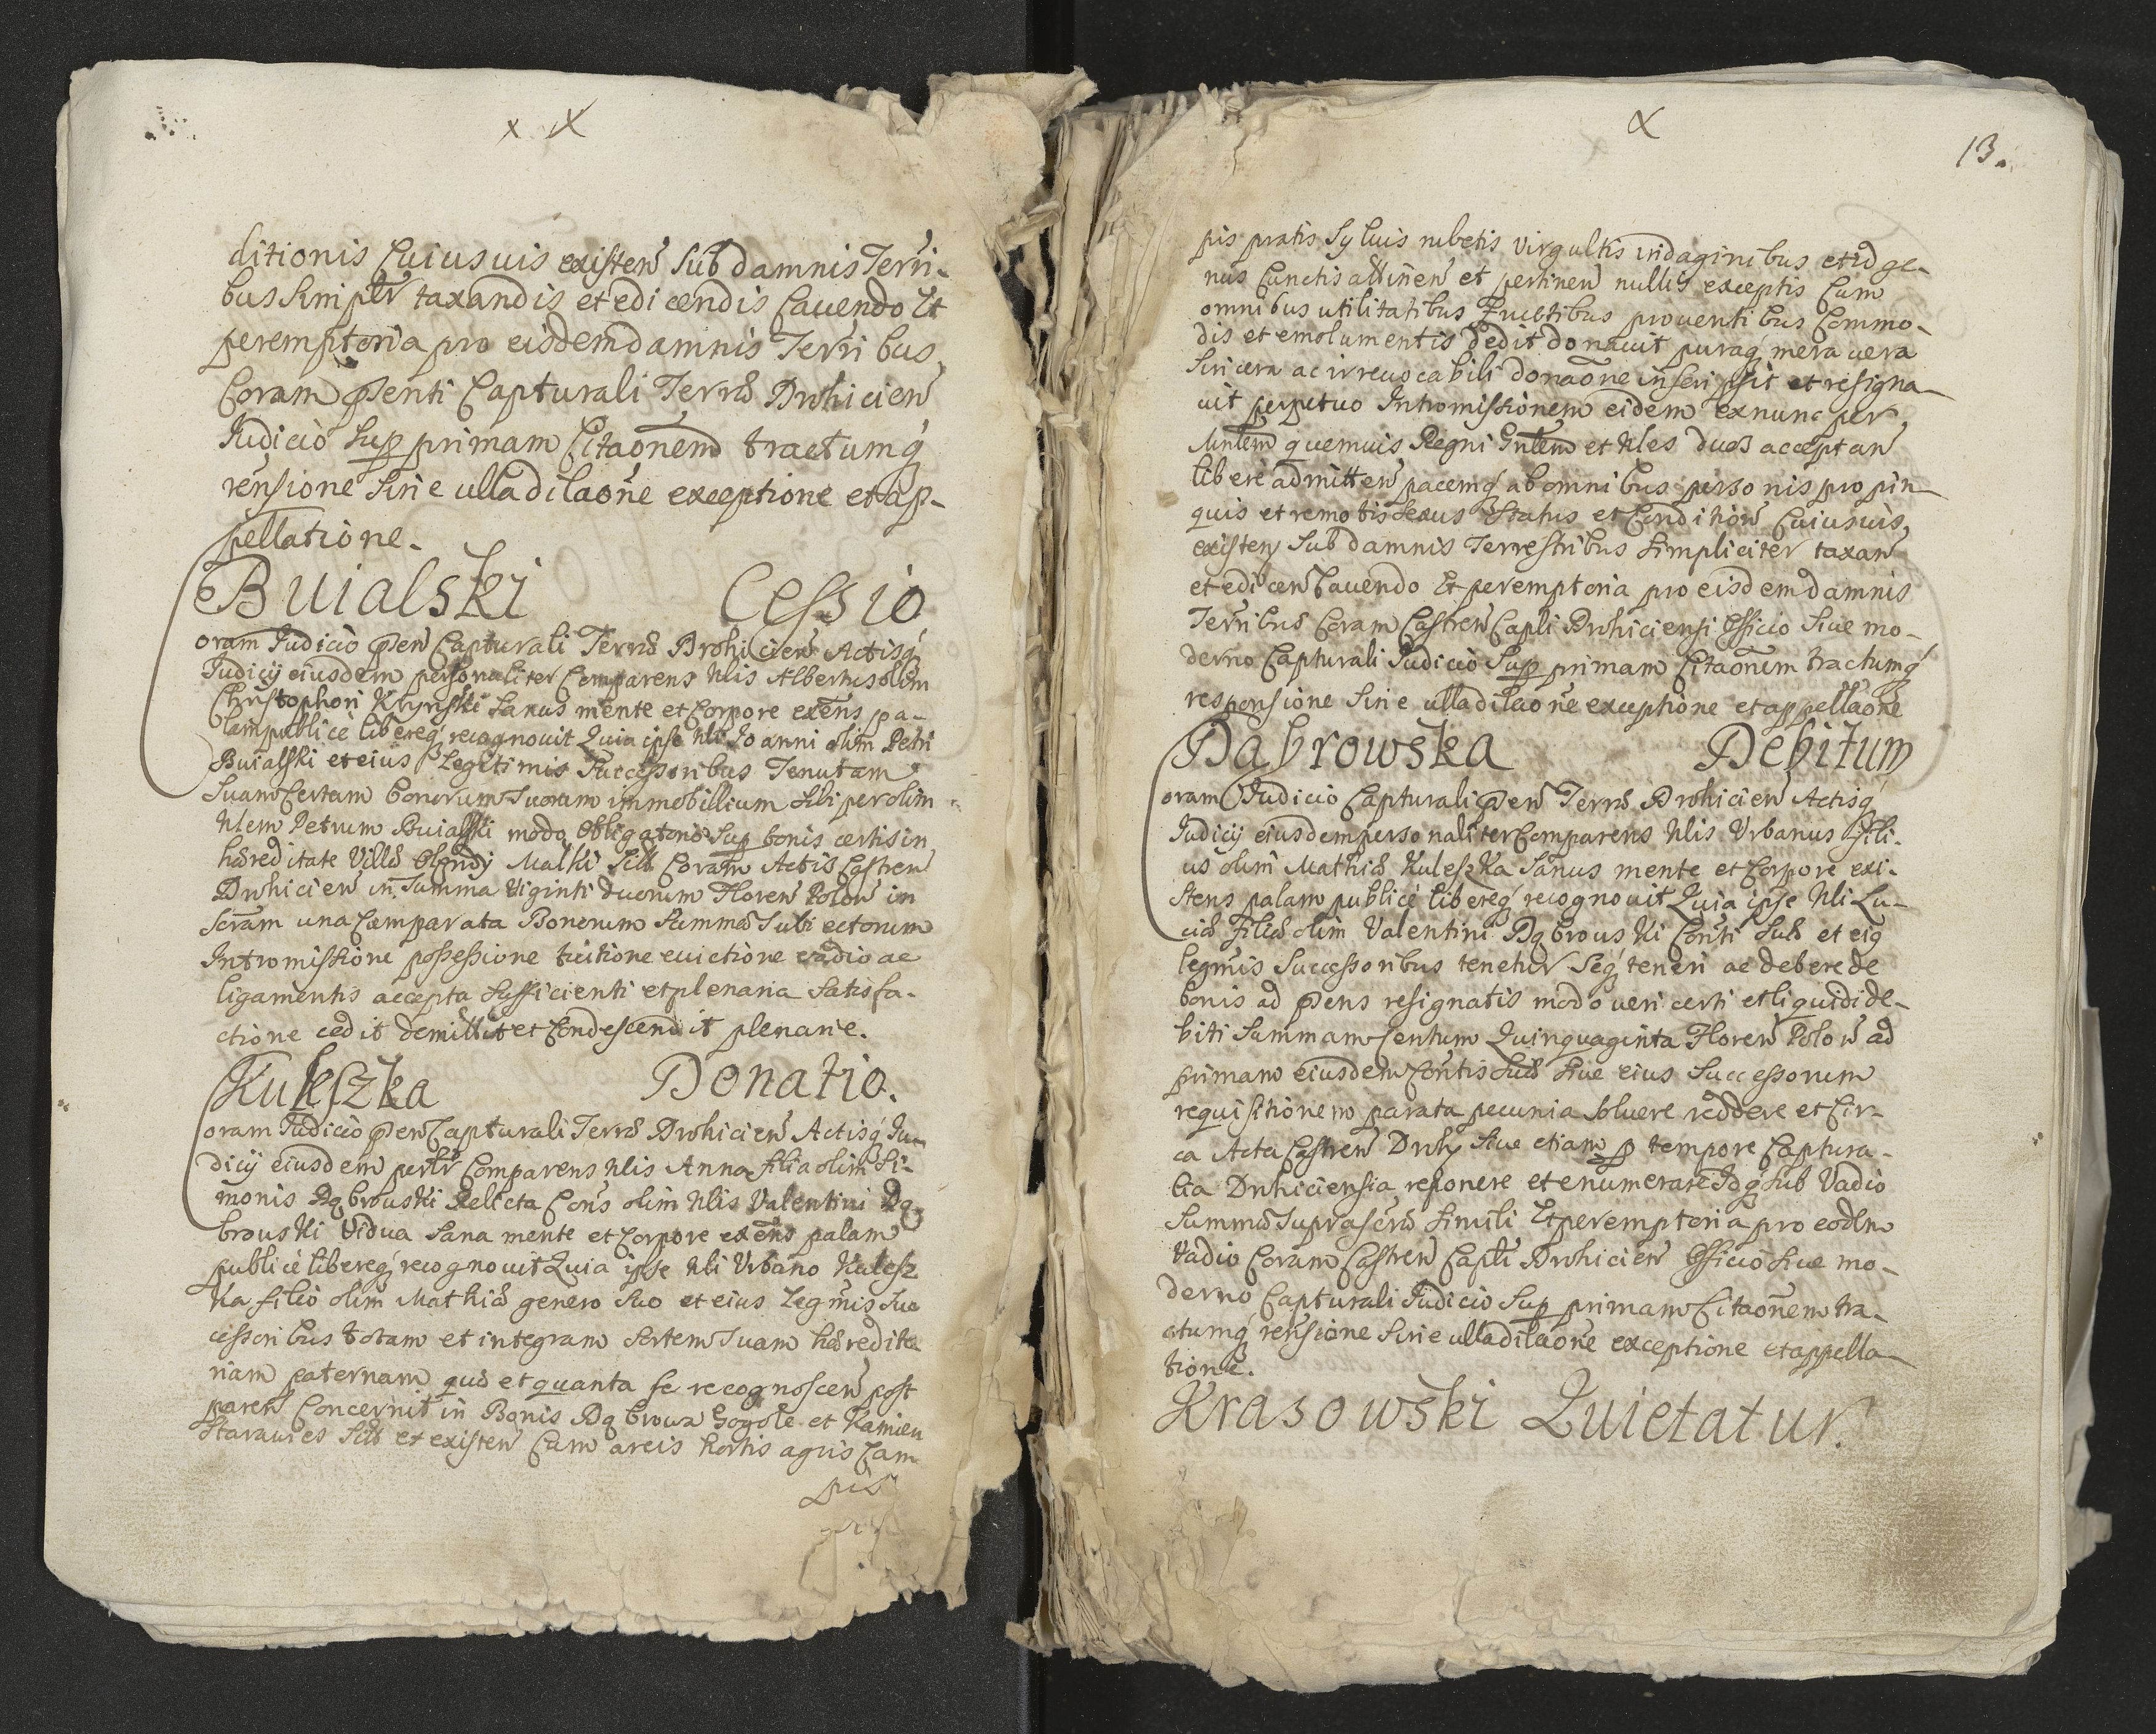 x x
ditionis Cuiusuis existen Sub damnis Terri-
bus Simplr taxandis et edicendis Cauendo Et
peremptoria pro eisdem damnis Terribus
Coram psenti Capturali Terræ Drohicien
Iudicio Sup primam Citaonem tractumq
rensione Sine ulla dilaone exceptione et ap-
pellatione.
Buialski Cessio
Coram Iudicio psen Capturali Terræ Drohicien Actisq
Iudicij eiusdem personaliter Comparens Nlis Albertus olim
Christophori Krynski Sanus mente et Corpore exens pa-
lam publice libereq recognouit Quia ipse Nli Joanni olim Petri
Buialski et eius Legitimis Successoribus Tenutam
Suam Certam bonorum Suorum immobilium Sibi per olim
Nlem Petrum Buialski modo Obligatorio Sup bonis certis in
hæreditate Villæ Malki Sitis Coram Actis Castren
Drohicien in Summa Viginti duorum Floren Polon in
scram una Comparata Bonorum Summæ Subiectorum
Intromissione possessione tuitione euictione vadio ac
ligamentis accepta Sufficienti et plenaria Satisfa-
ctione cedit demittit et Condescendit plenarie.
Kuleszka Donatio.
Coram Iudicio psen Capturali Terræ Drohicien Actisq Iu-
dicij eiusdem perlr Comparens Nlis Anna filia olim Si-
monis Dąbrouski Relicta Cons olim Nlis Valentini Dą-
brouski Vidua Sana mente et Corpore exens palam
publice libereq recognouit Quia ipse Nli Urbano Kulesz
ka filio olim Mathiæ genero Suo et eius Legmis Suc
cessoribus totam et integram Sortem Suam hæredita
riam paternam quæ et quanta se recognoscen post
paren Concernit in Bonis Dąbrowa Gogole et Kamien
Starawies Sitis et existen Cum areis hortis agris Cam
pis
x
13.
pis pratis Syluis rubetis virgultis indaginibus et id ge-
nus Cunctis attinen et pertinen nullis exceptis Cum
omnibus utilitatibus Fructibus prouentibus Commo-
dis et emolumentis dedit donauit puraq mera vera
Sincera ac irreuocabili donaone inscripsit et resigna-
uit perpetuo Intromissionem eidem ex nunc per
Mntlem quemuis Regni Gnlem et Nles duos acceptan
libere admitten pacemq ab omnibus personis propin-
quis et remotis Sexus Status et Condition Cuiusuis
existen Sub damnis Terrestribus Simpliciter taxan
et edicen Cauendo Et peremptoria pro eisdem damnis
Terribus Coram Castren Capli Drohiciensi Officio Siue mo-
derno Capturali Iudicio Sup primam Citaonem tractumq
responsione Sine ulla dilaone exceptione et appellaone
Dąbrowska Debitum
Coram Iudicio Capturali psen Terræ Drohicien Actisq
Iudicij eiusdem personaliter Comparens Nlis Urbanus fili-
us olim Mathiæ Kuleszka Sanus mente et Corpore exi-
stens palam publice libereq recognouit Quia ipse Nli Lu-
ciæ filiæ olim Valentini Dąbrouski Conti Suæ et eiq
legmis Successoribus tenetur Seq teneri ac debere de
bonis ad psens resignatis modo veri certi et liquidi de-
biti Summam Centum Quinquaginta Floren Polon ad
primam eiusdem Contis Suæ Siue eius Successorum
requisitionem parata pecunia Soluere reddere et Cir-
ca Acta Castren Droh Siue etiam p tempore Captura-
lia Drohiciensia reponere et enumerare Idq Sub Vadio
Summæ Suprascræ Simili Et peremptoria pro eodem
Vadio Coram Castren Capli Drohicien Officio Siue mo-
derno Capturali Iudicio Sup primam Citaonem tra-
ctumq rensione Sine ulla dilaone exceptione et appella-
tione.
Krasowski Quietatur.